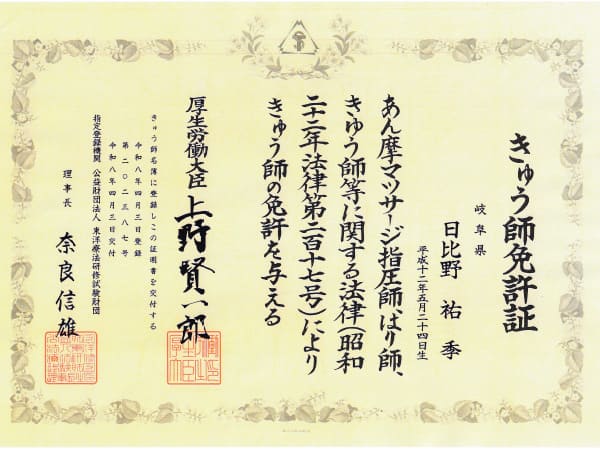 きゅう師免許証
岐阜県
日比野 祐季
平成十二年五月二十四日生
あん摩マッサージ指圧師、はり師、
きゅう師等に関する法律(昭和
二十二年法律第二百十七号)により
きゅう師の免許を与える
厚生労働大臣 上野賢一郎
きゅう師名簿に登録しこの証明書を交付する
令和八年四月三日登録
第二〇二三八七号
令和八年四月三日交付
指定登録機関 公益財団法人 東洋療法研修試験財団
理事長 奈良信雄